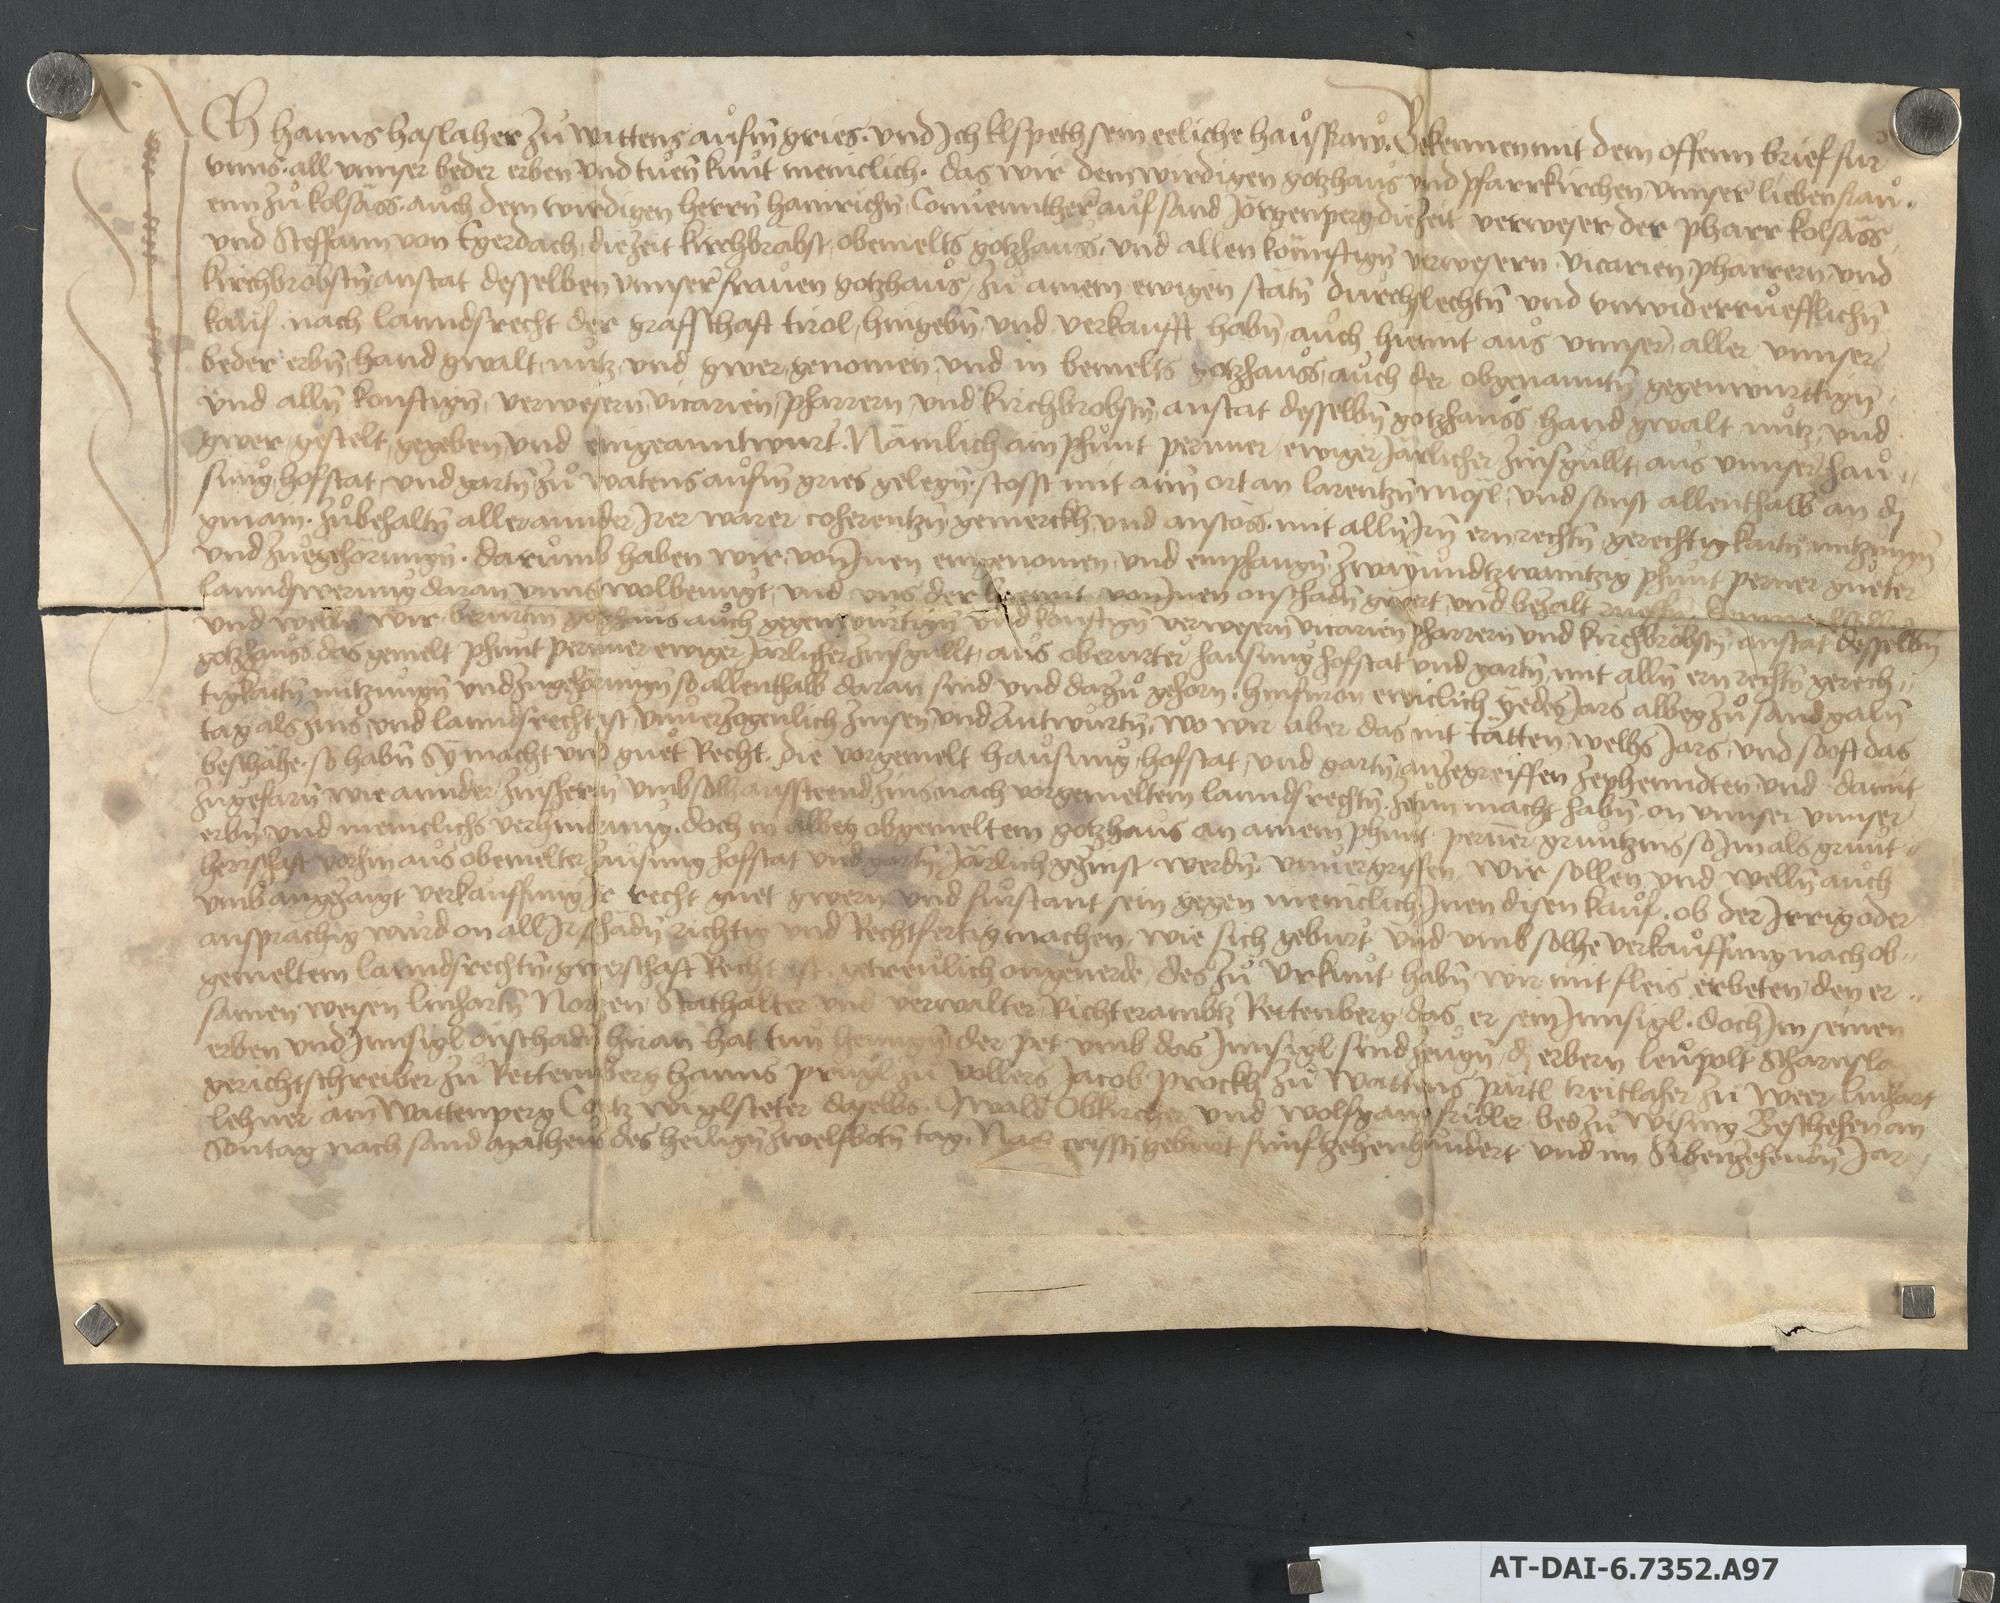 Ich Hanns Haslaher zů Wattens aůfm gries. Und Ich Elspeth sein eeliche haůsfraw. Bekennen mit dem offenn brief fůr
unns. all unnser beder erben und tuen kunt meniclich. das wir dem wirdigen gotzhaus und pfarrkirchen unnser lieben frau.
enn zů kolsäss. aůch dem wirdigen herrn hainrichn Convennther aůf sand Jörgenperg diezeit verweser der pharr kolsäss
und Steffann von Egerdach, diezeit kirchbrobst, obemelts gotzhauss, und allen könnftign verwesern, vicarien, pharrern, und
kirchbröbstn anstat desselben unnser frauen gotzhaůs, zů ainem ewigen stätn durchslechtn und unwiderrůefflichn
kauf. nach lanndsrecht der grafschaft tirol, hingebn, und verkaufft habn, aůch hiemit aus unnser, aller unnser
beder erbn, hand gwalt, nůtz, und gwer, genomen, und in bemelts gotzhauss, aůch der obgenanntn gegenwurttign,
und alln konftign, verwesern, vicarien, pfarrern, und kirchbrobstn, anstat desselbn gotzhauss hand gwalt nůtz, und
gwer, gestelt, gegeben, und eingeanntwurt. Nämlich ain phůnt pernner, ewiger Järlicher zinsgüllt, aus unnser hau,,
sung, hofstat, und gartn zů Watens aůfm gries gelegn. stosst mit aim ort an larentzn mösl, und sonst allenthalb an dj
gmain. zůbehaltn alleraunder Irer warer coherentzn, gemerckh, und anstöss. mit alln Irn ern, rechtn, gerechtigkaitn nutzungn
und zuegehörungn. darumb haben wir von Inen eingenomen, und emphangn. zwayundtzwaintzig phunt perner gueter
lanndswerung daran unns wolbenugt, und uns der hiemit von Inen onschadn gwert, und bezalt
und welln wir berurtm gotzhaus aůch gegenwurtign und konftign verwesern vicarien pharrern und kirchbröbstn, anstat desselbn
gotzhauss das gemelt phunt pernner ewiger Järlicher zinsgullt, aus oberurter hausung hofstat und gartn, mit alln ern rechtn gerech,,
tigkaitn nutzungn und zugehörungn so allenthalb daran sind und dazů gehörn. hinfuron ewiclich yedes Jars albeg zů sand galln
tag als zins, und lanndsrecht ist, unuerzogenlich zinsen, und antwurtn, wo wir aber das nit tätten, welhs Jars, und sooft das
beschähe. so habn Sy macht und guet Recht. die vorgemelt haůsung, hofstat, und gartn, anzegreiffen zephenndten, und damit
zugefarn wie annder zinsherrn umb solh aussteend zins nach vorgemeltem lanndsrechtn. zetun macht habn, on unnser unnser
erbn, und meniclichs verhindrung. doch in albeg obgemeltem gotzhaus an ainem phunt perner gruntzins so Im als grunt,,
herrschaft vorhin aůs obemelter hausung hofstat und gartn Järlich gezinst werdn. unuergriffen. Wir sollen und welln auch
umb angezaigt verkauffung Ir recht guet gwern und fůrstant sein gegen meniclich, Inen disen kauf. ob der Irrig oder
ansprächig wurd on all Ir schädn, richtig und Rechtfertig machen. wie sich geburt, und umb solhe verkauffung nach ob,,
gemeltem lanndsrechtn. gwerschaft Recht ist. getreulich ongeuerde, des zů urkunt habn wir mit fleis erbeten, den er,,
samen weisen linhartn Stathalter und verwalter Richterambtz Rettenberg, das er sein Innsigl. doch Im seinen
erben und Innsigl onschadn hiran hat tun henngen der pet umb das Innsigl sind zeugn, dj erbern leupolt
gerichtschreiber zů Rettemberg hanns prugl zu vollers Jacob prockh zů Wattens pärtl kreitlaher zu weer, linhart
lehner am Wattenperg daselbs. Oswald und wolfgang fridler bed zů Wising Beschehen an
Sontag nach sand Matheus des heilign zwelfbotn tag. Nach cristj geburt funfzehenhundert und im Sibenzehendn Jar,

AT-DAI-6.7352.A97